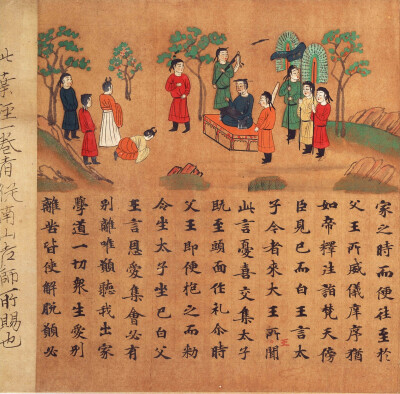 家之時而便往至於
父王所威儀庠序猶
如帝釋往詣梵天傍
臣見已而白王言太
子今者來大王所聞
此言憂喜交集太子
既至頭面作礼尒時
父王即便抱之而勅
令坐太子坐已白父
王言恩愛集會必有
別離唯願聽我出家
學道一切衆生愛別
離苦皆使解脫願必
此葉至一卷者従南山師所賜也